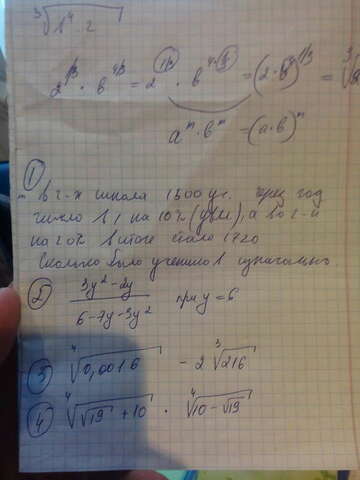 ∛(b⁴ 2)
2^(1/3) · b^(4/3) = 2^(1/3) · b^(4·1/3) = (2·b⁴)^(1/3) = ∛
aⁿ · bⁿ = (a·b)ⁿ
①
в 2-х школа 1500 уч. через год
число в 1 на 10% (увел), а во 2-й
на 20% в итоге стало 1720
Сколько было учеников изначально
② (3y² - 2y)/(6 - 7y - 3y²) при y = 6
③ ⁴√(0,0016) - 2 ∛(216)
④ ⁴√(√19 + 10) · ⁴√(10 - √19)